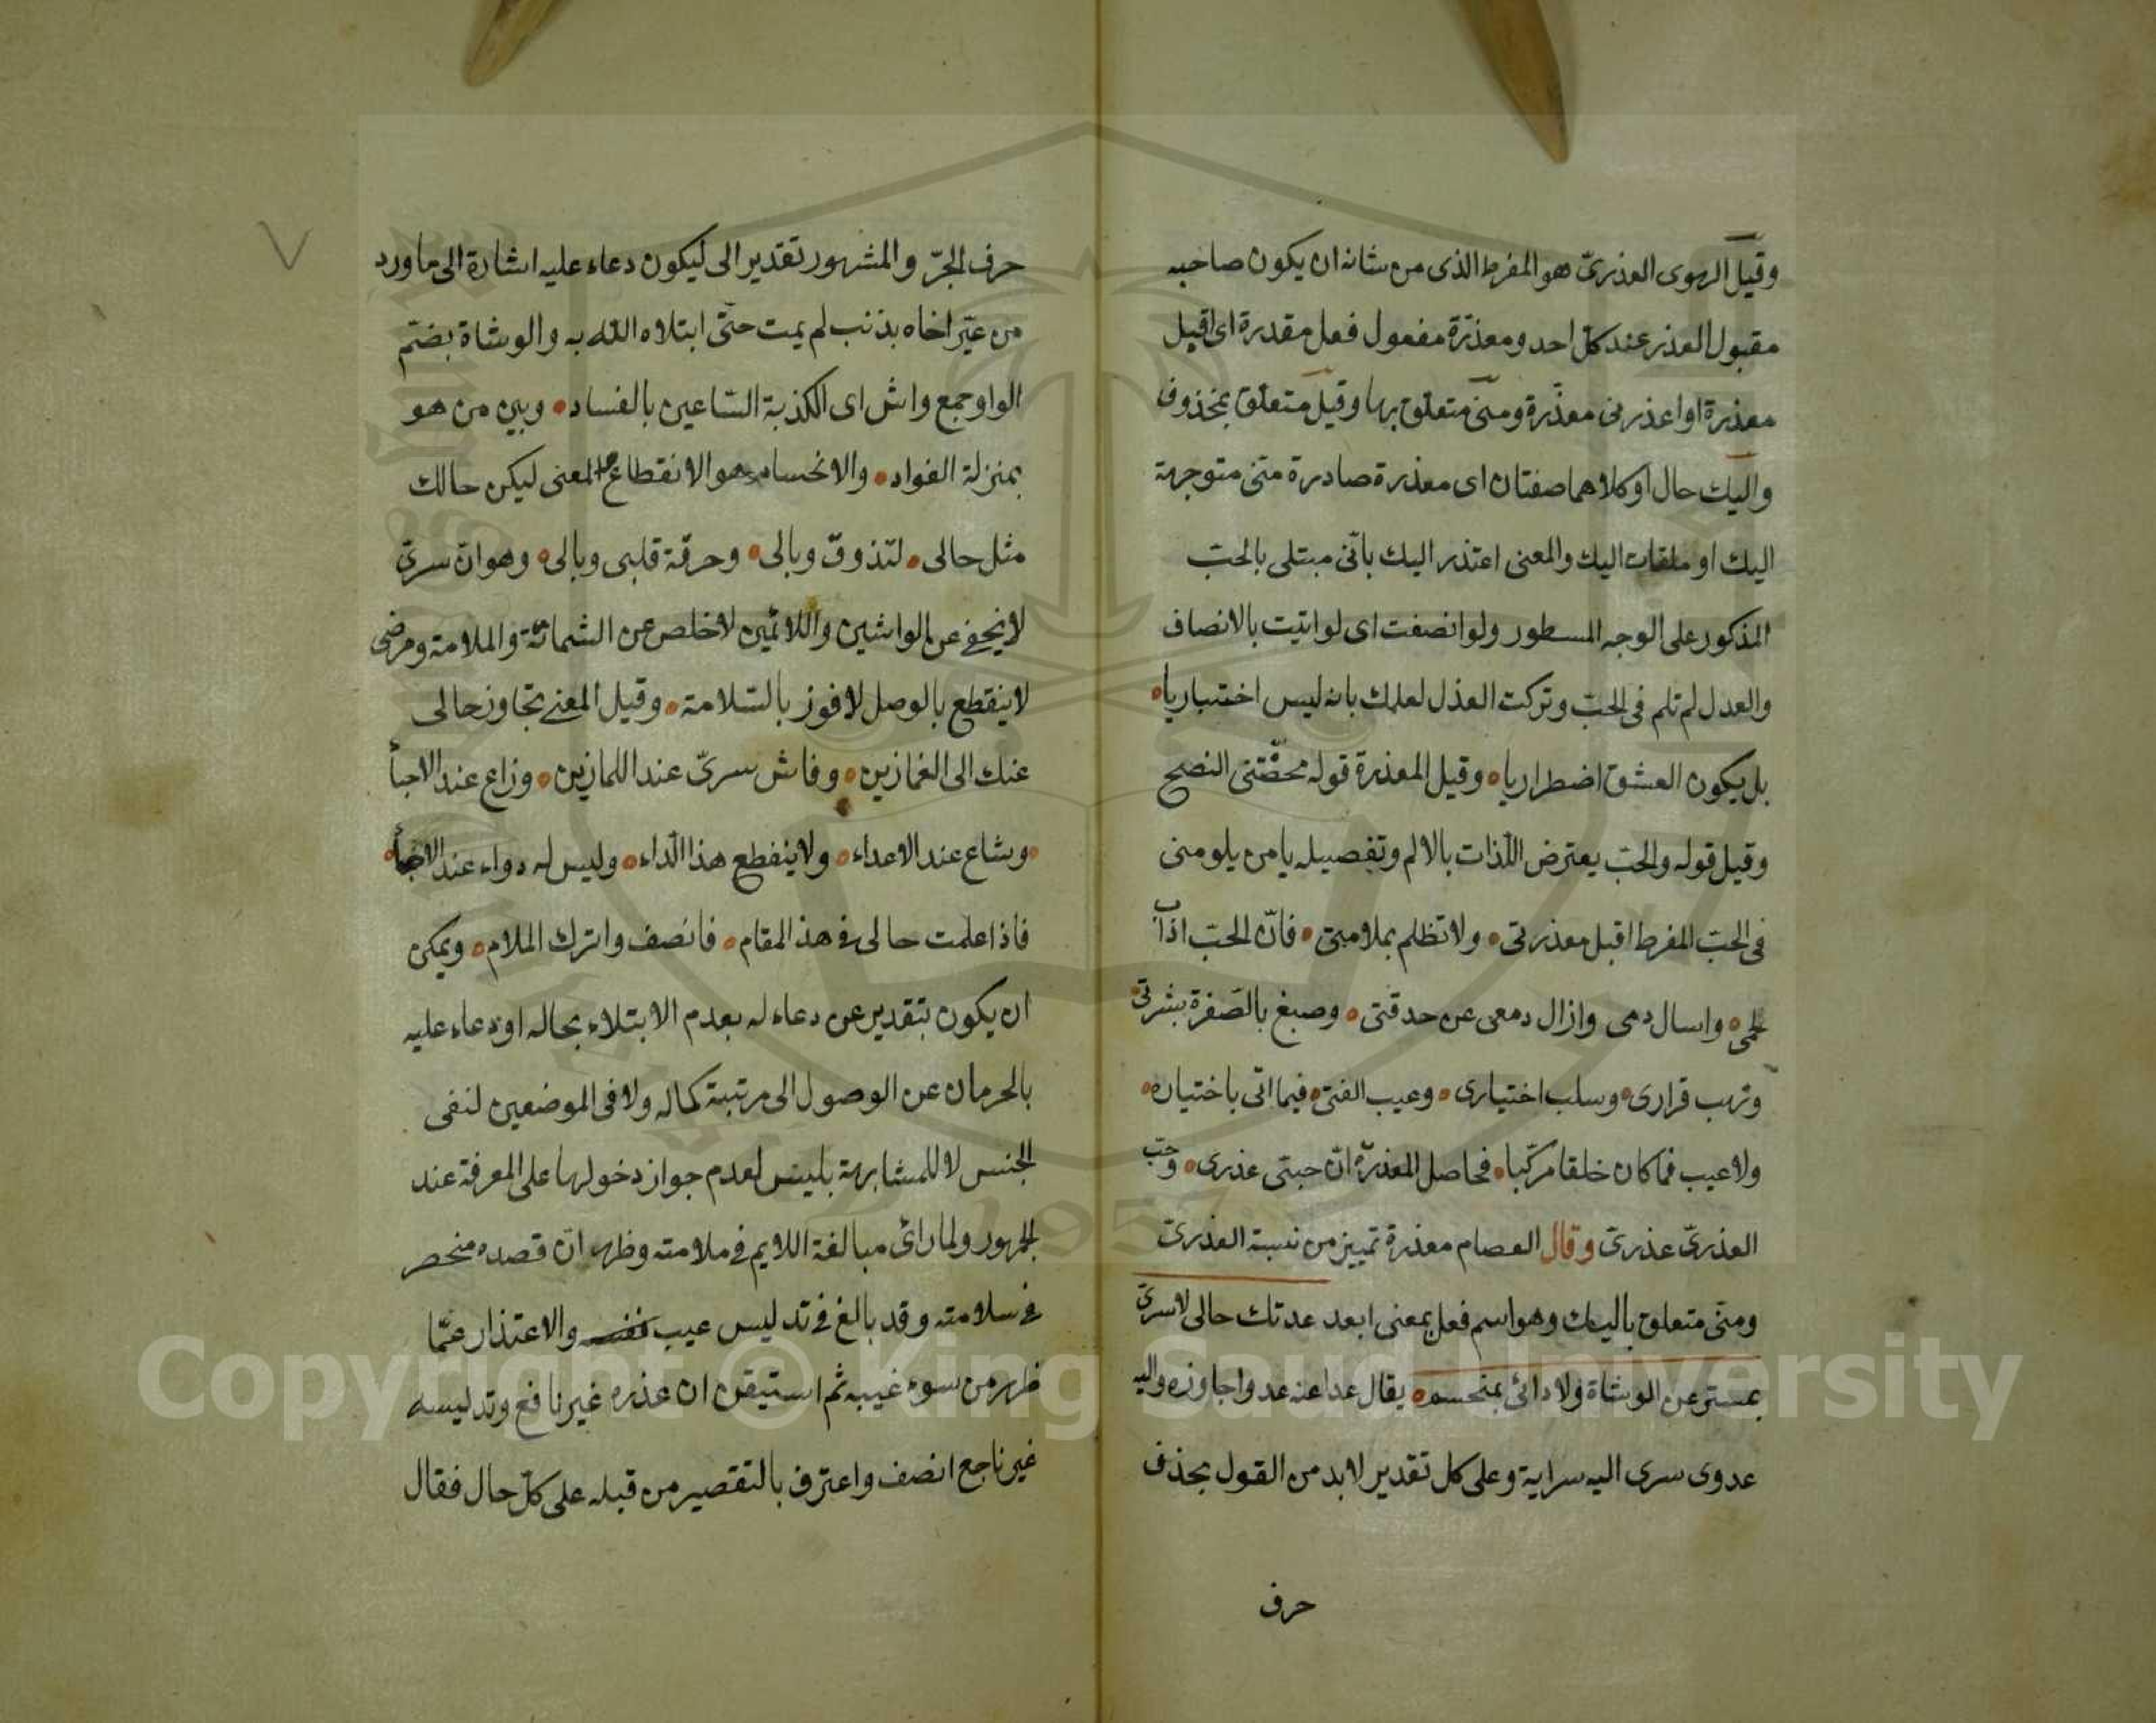 وقيل الهوى العذرىّ هو المفرط الذى من شانه ان يكون صاحبه
مقبول العذر عند كل احد ومعذرة مفعول فعل مقدرة اى اقبل
معذرة او اعذر منى معذرة ومنى متعلق بها وقيل متعلق بمحذوف
واليك حال او كلاهما صفتان اى معذرة صادرة منى متوجهة
اليك او ملقات اليك والمعنى اعتذر اليك بانى مبتلى بالحب
المذكور على الوجه المسطور ولو انصفت اى لو اتيت بالانصاف
والعدل لم تلم فى الحب وتركت العذل لعلمك بانه ليس اختياريا
بل يكون العشق اضطراريا وقيل المعذرة قوله محضتنى النصح
وقيل قوله والحب يعترض اللذات بالالم وتفصيله يا من يلومنى
فى الحب المفرط اقبل معذرتى ولا تظلم بملامتى فان الحب اذاب
لحمى واسال دمى وازال دمعى عن حدقتى وصبغ بالصفرة بشرتى
ونهب قرارى وسلب اختيارى وعيب الفتى فيما اتى باختياره
ولا عيب فما كان خلقا مركبا فحاصل المعذرة ان حبى عذرى وحب
العذرىّ عذرىّ وقال العصام معذرة تمييز من نسبة العذرىّ
ومنى متعلق باليك وهو اسم فعل بمعنى ابعد عدتك حالى لا سرى
بمستتر عن الوشاة ولا دائى بمنحسم يقال عدا عنه عدوا جاوزه واليه
عدوى سرى اليه سراية وعلى كل تقدير لابد من القول بحذف
حرف
حرف الجرّ والمشهور تقدير الى ليكون دعاء عليه اشارة الى ما ورد
من عيّر اخاه بذنب لم يمت حتى ابتلاه الله به والوشاة بضم
الواو جمع واش اى الكذبة الساعين بالفساد وبين من هو
بمنزلة الفواد والانحسام هو الانقطاع المعنى ليكن حالك
مثل حالى لتذوق وبالى وحرقة قلبى وبالى وهو ان سرى
لا يخفى عن الواشين واللائمين لاخلص عن الشماتة والملامة ومرضى
لا ينقطع بالوصل لافوز بالسلامة وقيل المعنى تجاوز حالى
عنك الى الغمازين وفاش سرىّ عند اللمازين وزاع عند الاحبأ
وشاع عند الاعداء ولا ينقطع هذا الداء وليس له دواء عند
فاذا علمت حالى فى هذ المقام فانصف واترك الملام ويمكن
ان يكون بتقدير عن دعاء له بعدم الابتلاء بحاله او دعاء عليه
بالحرمان عن الوصول الى مرتبة كماله ولا فى الموضعين لنفى
الجنس لا للمشابهة بليس لعدم جواز دخولها على المعرفة عند
الجمهور ولما رائ مبالغة اللايم فى ملامته وظهر ان قصده منحصر
فى سلامته وقد بالغ فى تدليس عيب نفسه والاعتذار عمّا
ظهر من سوء غيبه ثم استيقن ان عذره غير نافع وتدليسه
غير ناجع انصف واعترف بالتقصير من قبله على كل حال فقال
Copyright © King Saud University
1957